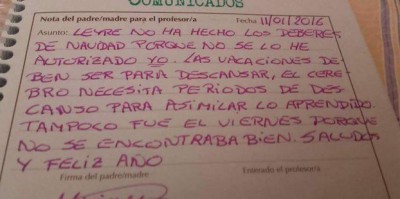 COMUNICADOS
Nota del padre/madre para el profesor/a Fecha 11/01/2016
Asunto: LEYRE NO HA HECHO LOS DEBERES
DE NAVIDAD PORQUE NO SE LO HE
AUTORIZADO YO. LAS VACACIONES DE-
BEN SER PARA DESCANSAR, EL CERE-
BRO NECESITA PERIODOS DE DES-
CANSO PARA ASIMILAR LO APRENDIDO.
TAMPOCO FUE EL VIERNES PORQUE
NO SE ENCONTRABA BIEN. SALUDOS
Y FELIZ AÑO
Firma del padre/madre Enterado el profesor/a